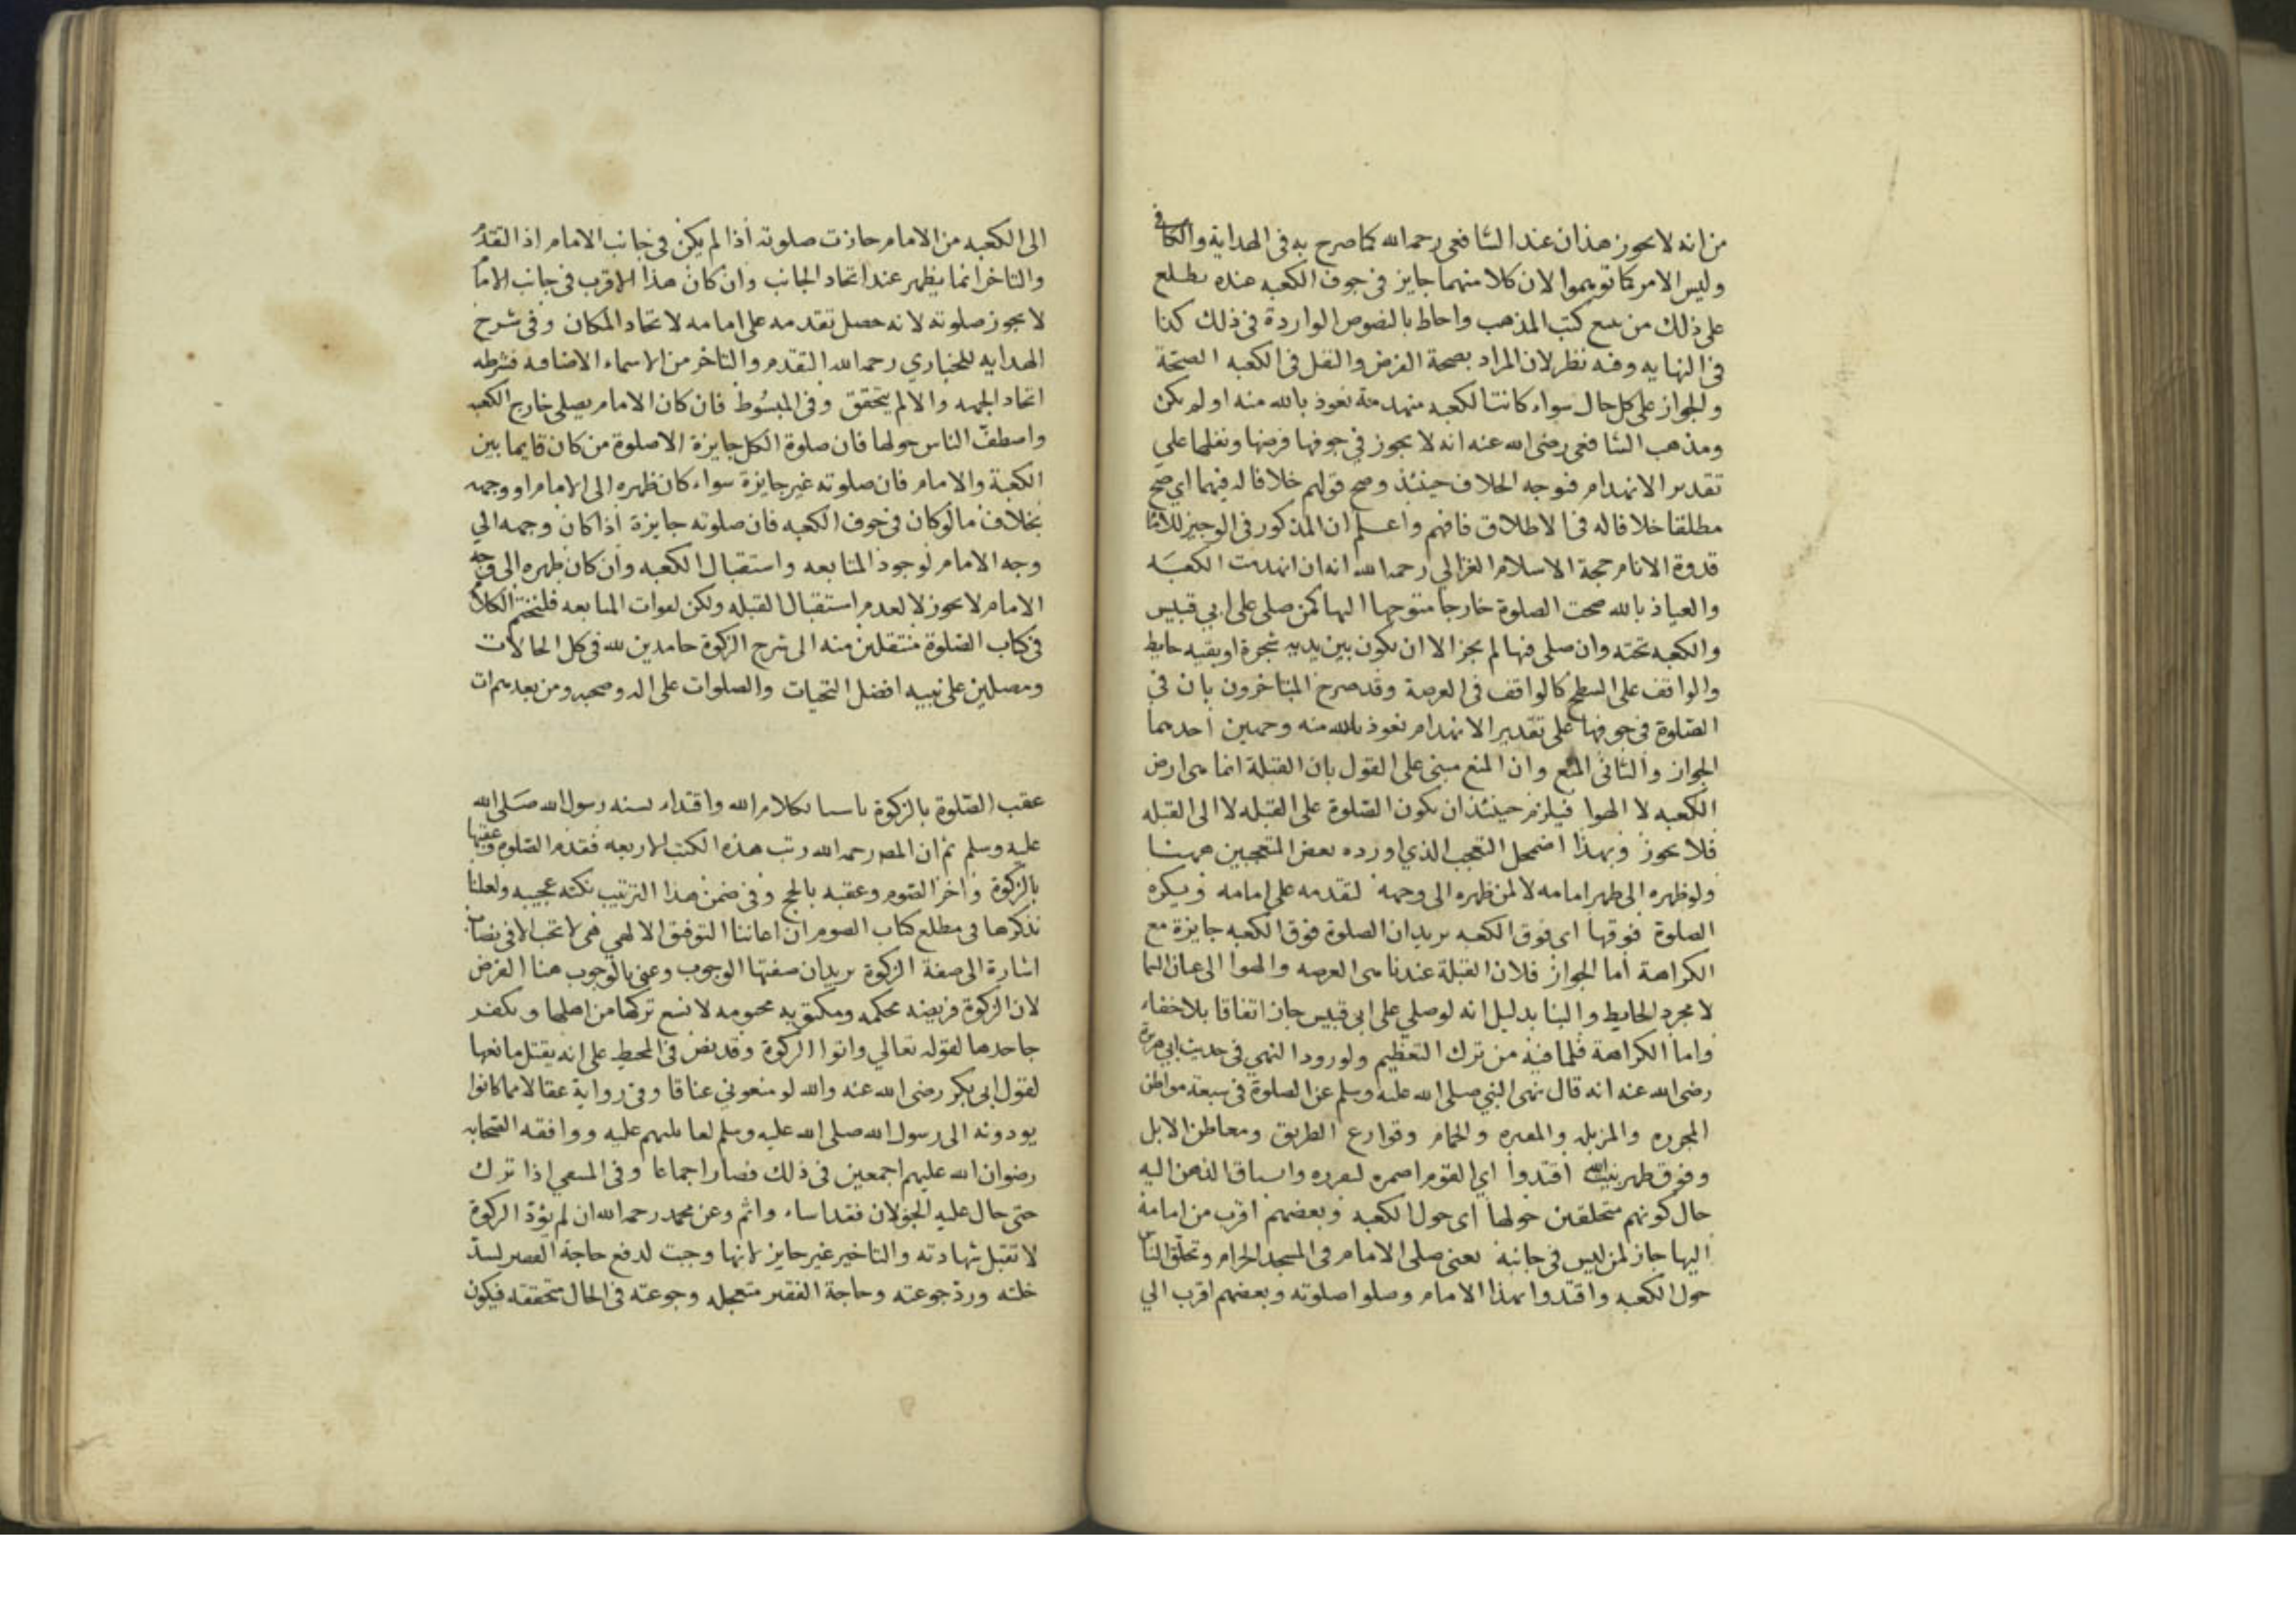 من انه لا يجوز هذان عند الشافعي رحمه الله كما صرح به في الهداية والكافي
وليس الامر كما توهموا لان كلا منهما جايز في جوف الكعبه عنده يطلع
على ذلك من تتبع كتب المذهب واحاط بالنصوص الواردة في ذلك كذا
في النهايه وفيه نظر لان المراد بصحة الفرض والنفل في الكعبه الصحة
والجواز على كل حال سواء كانت الكعبه منهدمة نعوذ بالله منه او لم يكن
ومذهب الشافعي رضى الله عنه انه لا يجوز في جوفها فرضها ونفلها على
تقدير الانهدام فتوجه الخلاف حينئذ وصح قولهم خلافا له فيهما اي صح
مطلقا خلافا له في الاطلاق فافهم واعلم ان المذكور في الوجيز للامام
قدوة الانام حجة الاسلام الغزالي رحمه الله انه ان انهدمت الكعبَه
والعياذ بالله صحت الصلوة خارجا متوجها اليها كمن صلى على ابي قبيس
والكعبه تحته وان صلى فيها لم يجز الا ان يكون بين يديه شجرة او بقيه حايط
والواقف على السطح كالواقف في العرصة وقد صرح المتاخرون بان في
الصّلوة في جوفها على تقدير الانهدام نعوذ بالله منه وجهين احدهما
الجواز والثاني المنع وان المنع مبنى على القول بان القبلة انما هى ارض
الكعبه لا الهوا فيلزم حينئذ ان يكون الصّلوة على القبله لا الى القبله
فلا يجوز وبهذا اضمحل التعجب الذي اورده بعض المتعجبين ههنا
ولو ظهره الى ظهر امامه لا لمن ظهره الى وجهه لتقدمه على امامه ويكره
الصلوة فوقها اى فوق الكعبه يريد ان الصلوة فوق الكعبه جايزة مع
الكراهة اما الجواز فلان القبلة عندنا هى العرصه والهوا الى عنان السما
لا مجرد الحايط والبنا بدليل انه لو صلي على ابى قبيس جاز اتفاقا بلا خفاء
واما الكراهة فلما فيه من ترك التعظيم ولورود النهي في حديث ابي هريرة
رضى الله عنه انه قال نهى النبي صلى الله عليه وسلم عن الصلوة في سبعة مواطن
المجزره والمزبله والمقبره والحمام وقوارع الطريق ومعاطن الابل
وفوق ظهر بيت الله اقتدوا اي القوم اضمره لتعرره وانسياق الذهن اليه
حال كونهم متحلقين حولها اى حول الكعبه وبعضهم اقرب من امامه
اليها جاز لمن ليس في جانبه يعنى صلى الامام في المسجد الحرام وتحلق الناس
حول الكعبه واقتدوا بهذا الامام وصلوا صلوته وبعضهم اقرب الي
الى الكعبه من الامام جازت صلوته اذا لم يكن في جانب الامام اذ التقدم
والتاخر انما يظهر عند اتحاد الجانب وان كان هذا الاقرب في جانب الامام
لا يجوز صلوته لانه حصل تقدمه على امامه لاتحاد المكان وفي شرح
الهدايه للخبازي رحمه الله التقدم والتاخر من الاسماء الاضافه فشرطه
اتحاد الجهه والا لم يتحقق وفي المبسُوط فان كان الامام يصلى خارج الكعبه
واصطفّ الناس حولها فان صلوة الكل جايزة الا صلوة من كان قايما بين
الكعبة والامام فان صلوته غير جايزة سواء كان ظهره الى الامام او وجهه
بخلاف ما لو كان في جوف الكعبه فان صلوته جايزة اذا كان وجهه الي
وجه الامام لوجود المتابعه واستقبال الكعبه وان كان ظهره الى وجه
الامام لا يجوز لا لعدم استقبال القبله ولكن لفوات المتابعه فلنختم الكلام
في كتاب الصّلوة منتقلين منه الى شرح الزكوة حامدين لله في كل الحالات
ومصلين على نبيه افضل التحيات والصلوات على اله وصحبه ومن بعدهم ات
عقب الصّلوة بالزكوة تاسيا بكلام الله واقتداء بسنه رسول الله صَلى الله
عليه وسلم ثم ان المصـ رحمه الله رتب هذه الكتب الاربعه فقدم الصّلوة وعقبها
بالزّكوة واخر الصّوم وعقبه بالحج وفى ضمن هذا الترتيب نكته عجيبه ولعلنا
نذكرها في مطلع كتاب الصوم ان اعاننا التوفيق الالهي هى لا تجب الا في نصاب
اشارة الى صفة الزكوة يريد ان صفتها الوجوب وعنى بالوجوب هنا الفرض
لان الزكوة فريضه محكمه ومكتوبه محتومه لا نسع تركها من اصلها ويكفر
جاحدها لقوله تعالي واتوا الزكوة وقد نص في المحيط على انه يقتل مانعها
لقول ابى بكر رضى الله عنه والله لو منعوني عناقا وفي رواية عقالا مما كانوا
يودونه الى رسول الله صلى الله عليه وسلم لقاتلتهم عليه ووافقه الصّحابه
رضوان الله عليهم اجمعين في ذلك فصار اجماعا وفي المنتقي اذا ترك
حتى حال عليه الحولان فقد اساء واثم وعن محمد رحمه الله ان لم يؤد الزكوة
لا تقبل شهادته والتاخير غير جايز لانها وجبت لدفع حاجة الفقير لسد
خلته ورد جوعته وحاجة الفقير متعجله وجوعته في الحال متحققه فيكون